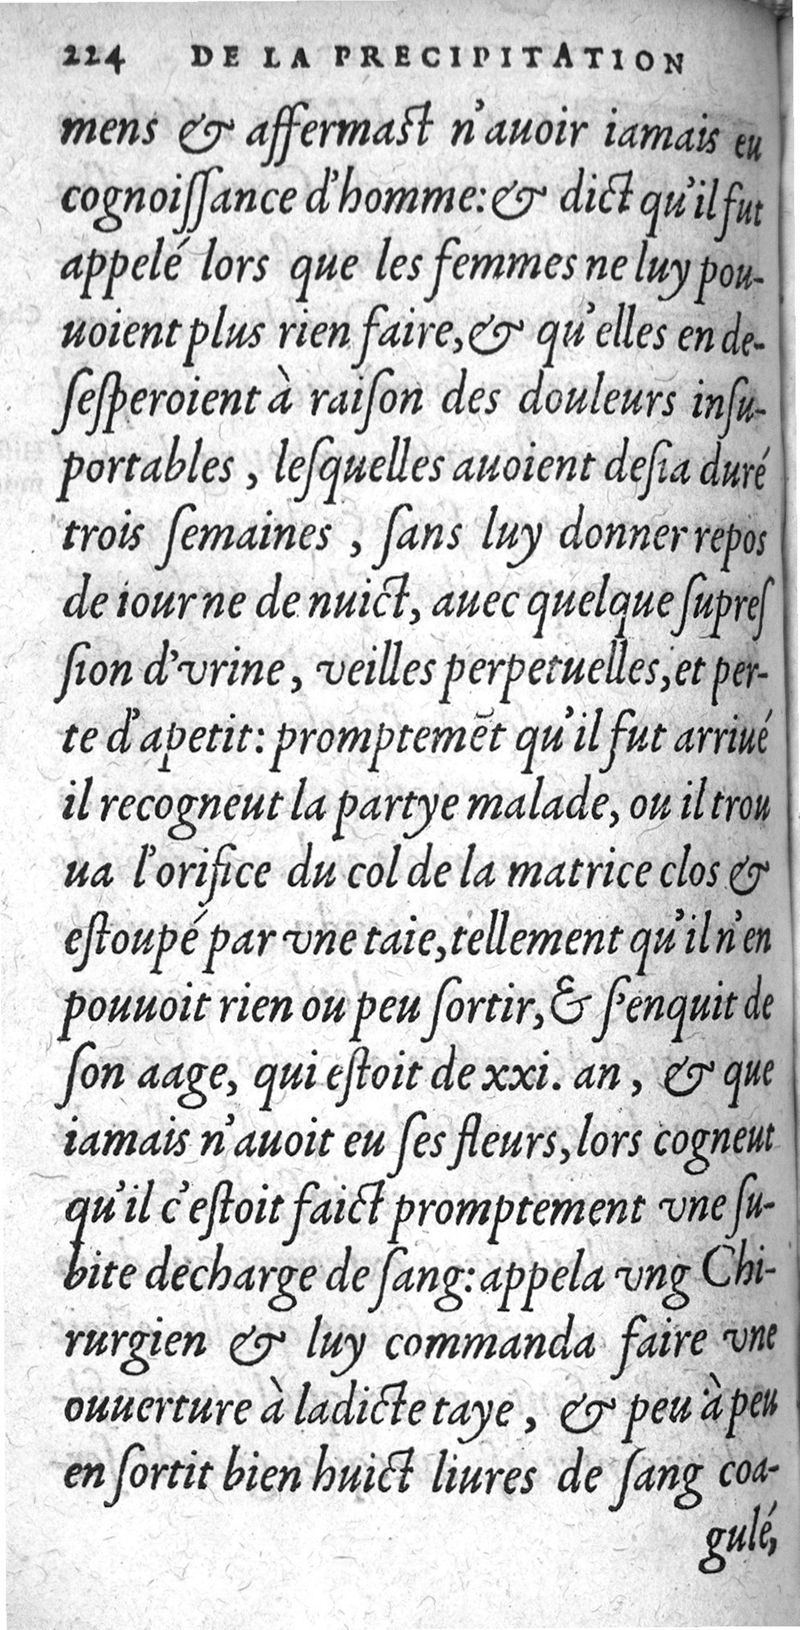 224 DE LA PRECIPITATION
mens & affermast n'auoir iamais eu
cognoiſſance d'homme: & dict qu'il fut
appelé lors que les femmes ne luy pou-
uoient plus rien faire, & qu'elles en de-
ſeſperoient à raiſon des douleurs inſu-
portables, leſquelles auoient deſia duré
trois ſemaines, ſans luy donner repos
de iour ne de nuict, auec quelque ſupreſ
ſion d'vrine, veilles perpetuelles, et per-
te d'apetit: promptemēt qu'il fut arriué
il recogneut la partye malade, ou il trou
ua l'orifice du col de la matrice clos &
eſtoupé par vne taie, tellement qu'il n'en
pouuoit rien ou peu ſortir, & ſ'enquit de
ſon aage, qui eſtoit de xxi. an, & que
iamais n'auoit eu ſes fleurs, lors cogneut
qu'il c'eſtoit faict promptement vne ſu-
bite decharge de ſang: appela vng Chi-
rurgien & luy commanda faire vne
ouuerture à ladicte taye, & peu à peu
en ſortit bien huict liures de ſang coa-
gulé,